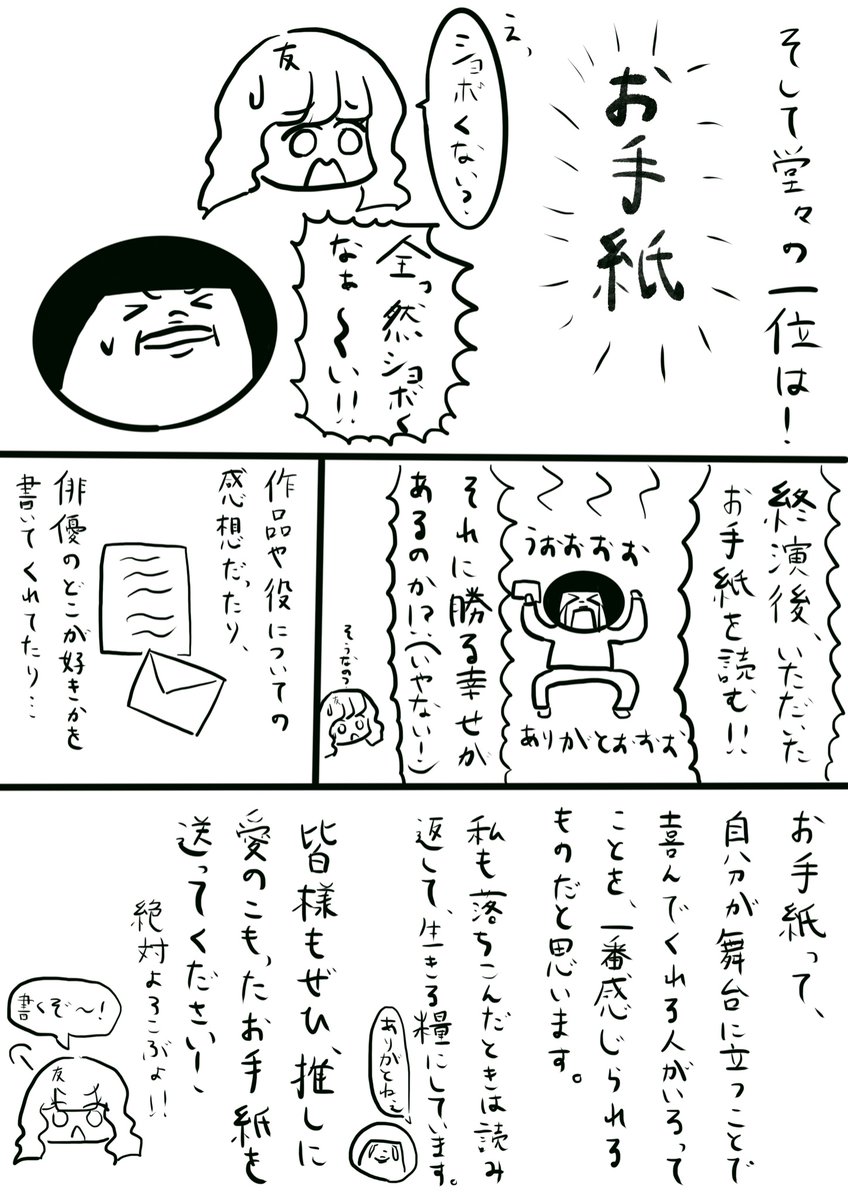 そして堂々の一位は！
お手紙
え、
ショボくない？
友
全っ然ショボく
なぁ〜い!!
終演後、いただいた
お手紙を読む!!
うおおおお
ありがとおおお
それに勝る幸せが
あるのか!?(いやない！)
そうなの？
友
作品や役についての
感想だったり、
俳優のどこが好きかを
書いてくれてたり…
お手紙って、
自分が舞台に立つことで
喜んでくれる人がいるって
ことを、一番感じられる
ものだと思います。
私も落ちこんだときは読み
返して、生きる糧にしています。
ありがとねぇ
皆様もぜひ、推しに
愛のこもったお手紙を
送ってください！
絶対よろこぶよ!!
書くぞ〜！
友